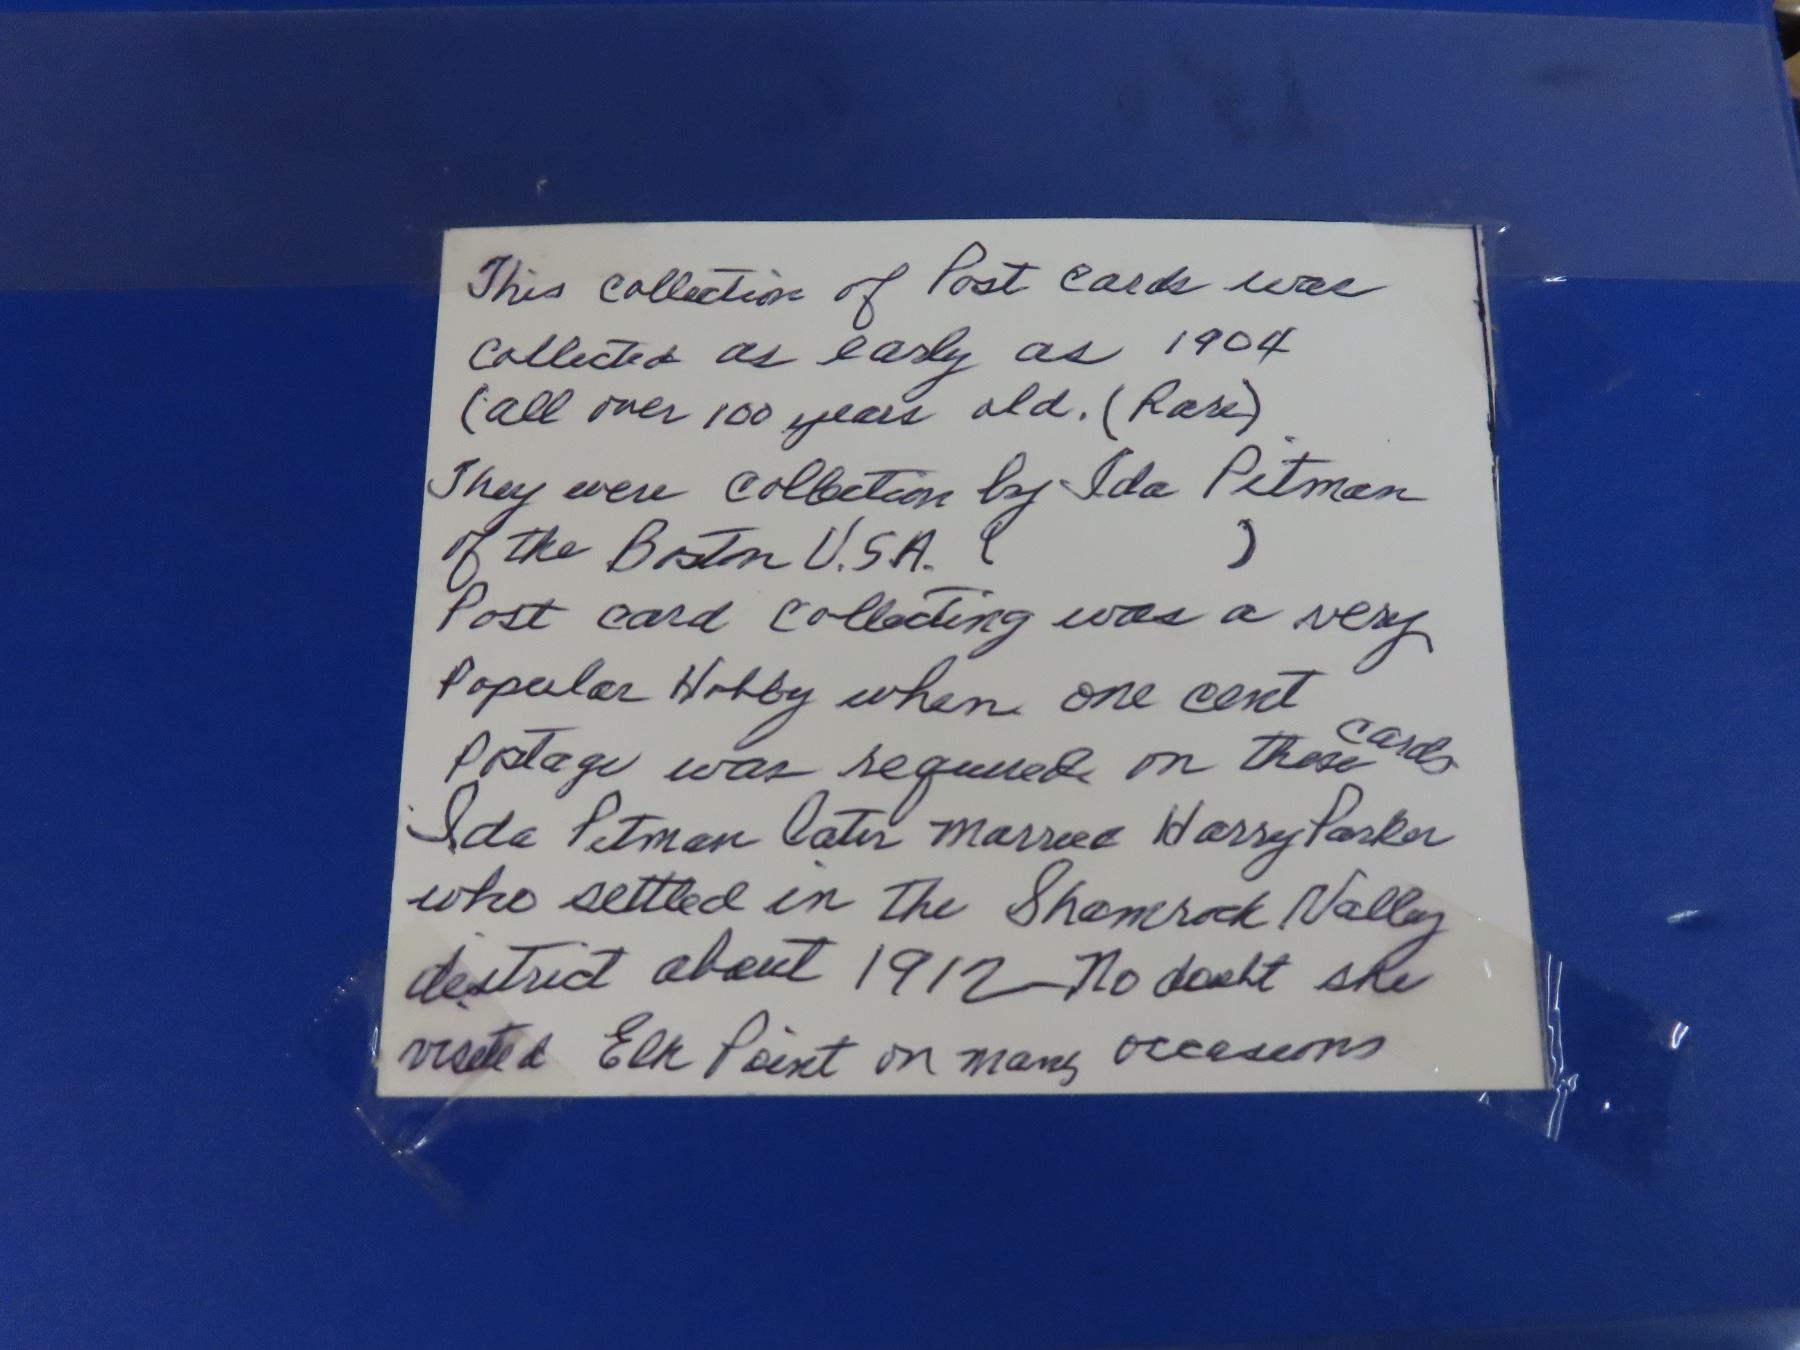 This collection of Post cards was
collected as early as 1904
(all over 100 years old. (Rare)
They were collection by Ida Pitman
of the Boston U.S.A. (          )
Post card collecting was a very
Popular Hobby when one cent
Postage was required on these cards
Ida Pitman later married Harry Parker
who settled in the Shamrock Valley
district about 1912 - No doubt she
visited Elk Point on many occasions